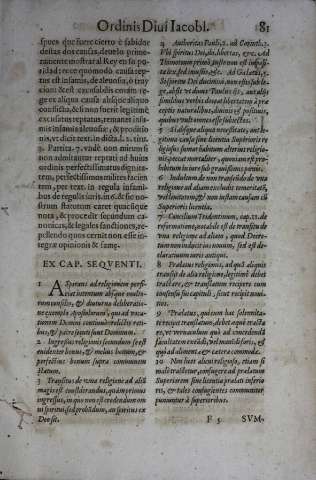 Ordinis Diui Iacobi. 81
spues que fuere cierto è sabidor
destas dos causas, detelo prime-
ramente mostrar al Rey en su po-
ridad: recte quomodo causa rep-
tus est infamis, de aleuosia, ò tray
cion: & est
ge ex aliqua causa absque aliqua
confisca, & si non fuerit legitimè
excusatus reptatus, remanet infa-
mis infamia aleuosiæ, & proditio
nis, vt dicit text. in dicta.l.2. titu.
3. Partita. 7. vndè non mirum si
non admittatur reptari ad huius
ordinis perfectissimatus dignita-
tem, perfectissimatus milites faciũ
tem, per text. in regula infami-
bus de regulis iuris. in 6. & sic no-
strum statutum caret quacũque
nota, & procedit secundùm ca-
nonicas, & legales sanctiones, re-
pellendo quos certus non esse in-
tegræ opinionis & famæ.
EX CAP. SEQVENTI.
1 ASpirans ad religionem perfi-
ciat intentum absque multo-
rum consilijs, & diuturna deliberatio-
ne exemplo Apostolorum, qui ad voca-
tionem Domini continuò relictis reti-
bus, & patre sunt Dominum.
2 Ingressus religionis secundum se est
euidenter bonus, & melius bonum, &
perfectius bonum supra communem
statum.
3 Transitus de vna religione ad aliã
magis est considerandus, quàm primus
ingressus, in quo non est credendum om
ni spiritui, sed probãdum, an spiritus ex
Deo sit.
4 Authoritas Pauli, 2. ad Corinth. 3.
Vbi spiritus Dei, ibi libertas, &c. Ad
Thimoteum primò, iusto non est imposi-
ta lex, sed iniustis, &c. Ad Galatas, 5.
Si spiritu Dei ductimini, non estis sub le-
ge, absit vt diuus Paulus
similibus verbis doceat libertatem à præ
ceptis naturalibus, diuinis, & positiuis,
quibus vult omnes esse subiectos.
5 Si absque aliqua necessitate, aut le-
gitima causa sine licentia Superioris re-
ligiosus sumat habitum alterius religio-
nis, peccat mortaliter, quoniam est pro-
hibitum in iure sub grauissimis pœnis.
6 Indultum de non transeundo de vna
religione ad aliam excludit temeritatẽ,
vel leuitatem, & non iustam causam cũ
Superioris licentia.
7 Concilium Tridentinum, cap. 11. de
reformatione, notabile est de transitu de
vna religione ad aliam, quod Decre-
tum non inducit ius nouum, sed est de-
claratiuum iuris antiqui.
8 Prælatus religionis, ad quẽ aliquis
transit de alia religione, legitimè debet
tractare, & translatum recipere cum
consensu sui capituli, sicut recipit noui-
tios.
9 Prælatus, qui cum hac solemnita-
te recipit translatum, debet apud se tracta-
re, & vernaculum quò ad concedendã
facultatem exeũdi, vel mutuã dis, &
quò ad alimenta, & cætera commoda.
10 Non licet alieni religioso, etiam si
malè tractetur, confugere ad prælatum
Superiorem sine licentia prælati inferio
ris, & tales confugientes communiter
puniuntur à superioribus.
F 5 SVM-